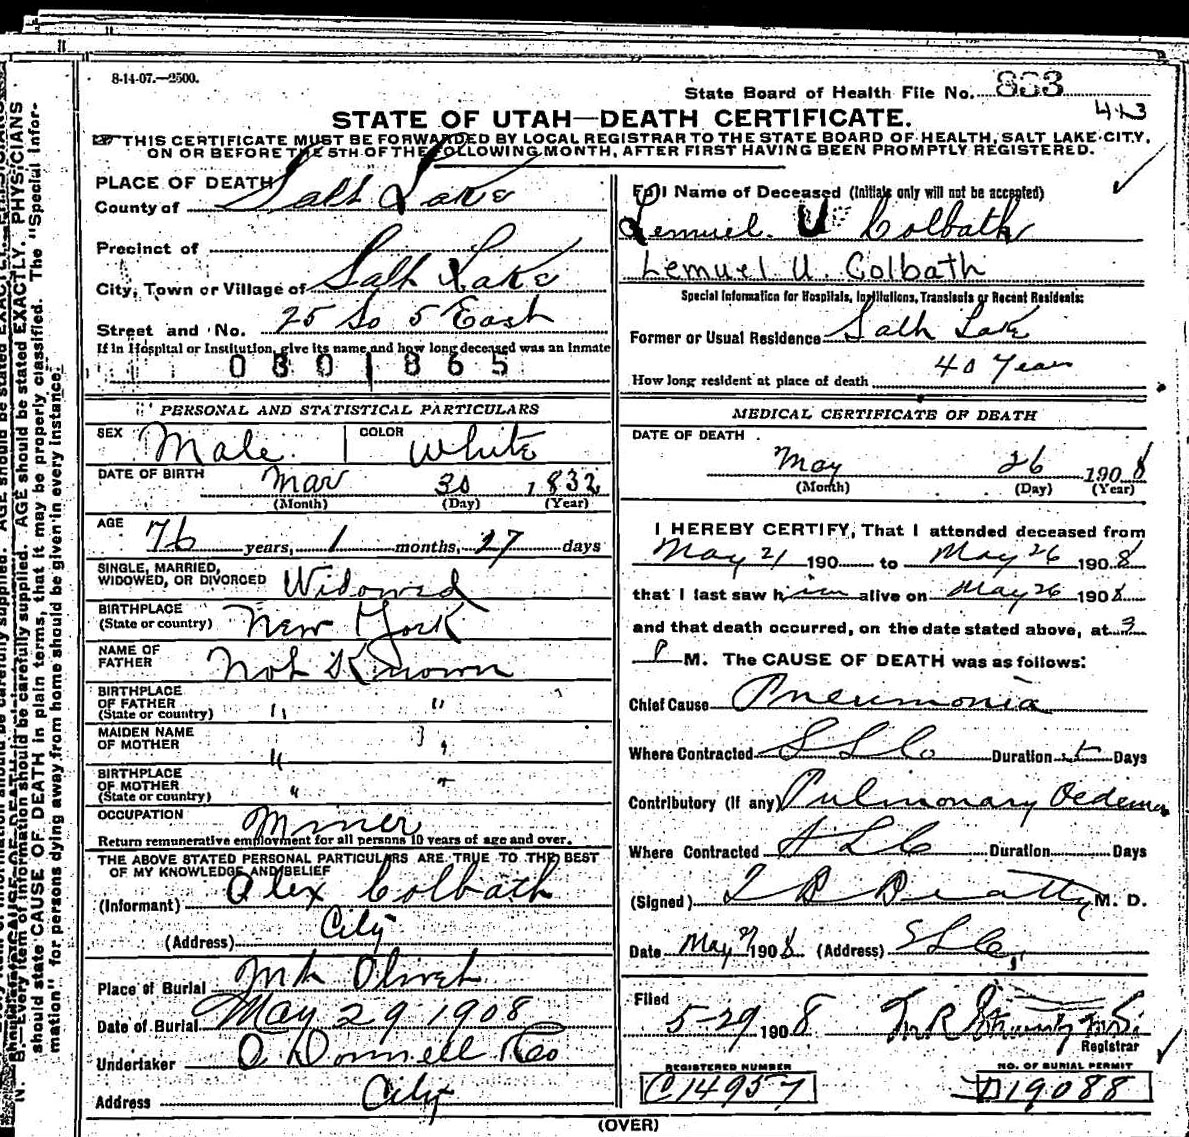 8-14-07.—2500.
State Board of Health File No. 883
413
STATE OF UTAH—DEATH CERTIFICATE.
THIS CERTIFICATE MUST BE FORWARDED BY LOCAL REGISTRAR TO THE STATE BOARD OF HEALTH, SALT LAKE CITY,
ON OR BEFORE THE 5TH OF THE FOLLOWING MONTH, AFTER FIRST HAVING BEEN PROMPTLY REGISTERED.
PLACE OF DEATH
County of Salt Lake
Precinct of
City, Town or Village of Salt Lake
Street and No. 25 So 5 East
If in Hospital or Institution, give its name and how long deceased was an inmate
0801865
PERSONAL AND STATISTICAL PARTICULARS
SEX Male COLOR White
DATE OF BIRTH Mar 30 1832
(Month) (Day) (Year)
AGE 76 years, 1 months, 27 days
SINGLE, MARRIED,
WIDOWED, OR DIVORCED Widowed
BIRTHPLACE
(State or country) New York
NAME OF
FATHER Not Known
BIRTHPLACE
OF FATHER
(State or country) " "
MAIDEN NAME
OF MOTHER " "
BIRTHPLACE
OF MOTHER
(State or country) " "
OCCUPATION Miner
Return remunerative employment for all persons 10 years of age and over.
THE ABOVE STATED PERSONAL PARTICULARS ARE TRUE TO THE BEST
OF MY KNOWLEDGE AND BELIEF
(Informant) Alex Colbath
(Address) City
Place of Burial Mt Olivet
Date of Burial May 29 1908
Undertaker O'Donnell & Co
Address City
Full Name of Deceased (Initials only will not be accepted)
Lemuel U. Colbath
Lemuel U. Colbath
Special Information for Hospitals, Institutions, Transients or Recent Residents:
Former or Usual Residence Salt Lake
How long resident at place of death 40 Years
MEDICAL CERTIFICATE OF DEATH
DATE OF DEATH
May 26 1908
(Month) (Day) (Year)
I HEREBY CERTIFY, That I attended deceased from
May 21 190 to May 26 1908
that I last saw him alive on May 26 1908
and that death occurred, on the date stated above, at 3
P M. The CAUSE OF DEATH was as follows:
Chief Cause Pneumonia
Where Contracted SLC Duration 5 Days
Contributory (If any) Pulmonary Oedema
Where Contracted SLC Duration Days
(Signed) T B Beatty M. D.
Date May 27 1908 (Address) SLC
Filed
5-29 1908
Registrar
REGISTERED NUMBER
C14957
NO. OF BURIAL PERMIT
D19088
(OVER)
N. B.—Every item of information should be carefully supplied. AGE should be stated EXACTLY. PHYSICIANS
should state CAUSE OF DEATH in plain terms, that it may be properly classified. The "Special Infor-
mation" for persons dying away from home should be given in every instance.